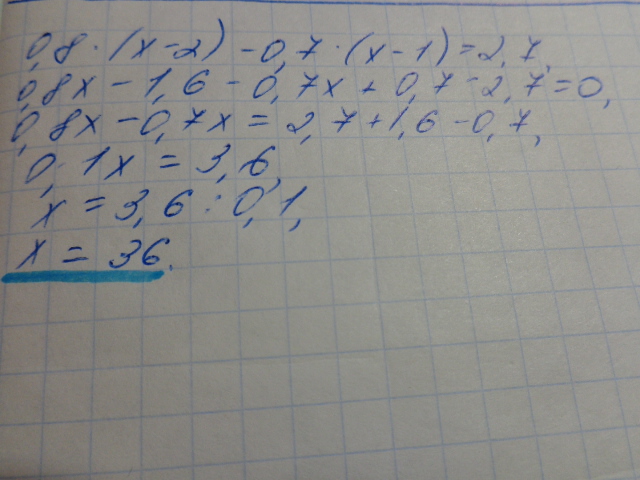 0,8·(x-2)-0,7·(x-1)=2,7,
0,8x-1,6-0,7x+0,7-2,7=0,
0,8x-0,7x=2,7+1,6-0,7,
0,1x=3,6,
x=3,6:0,1,
x=36.